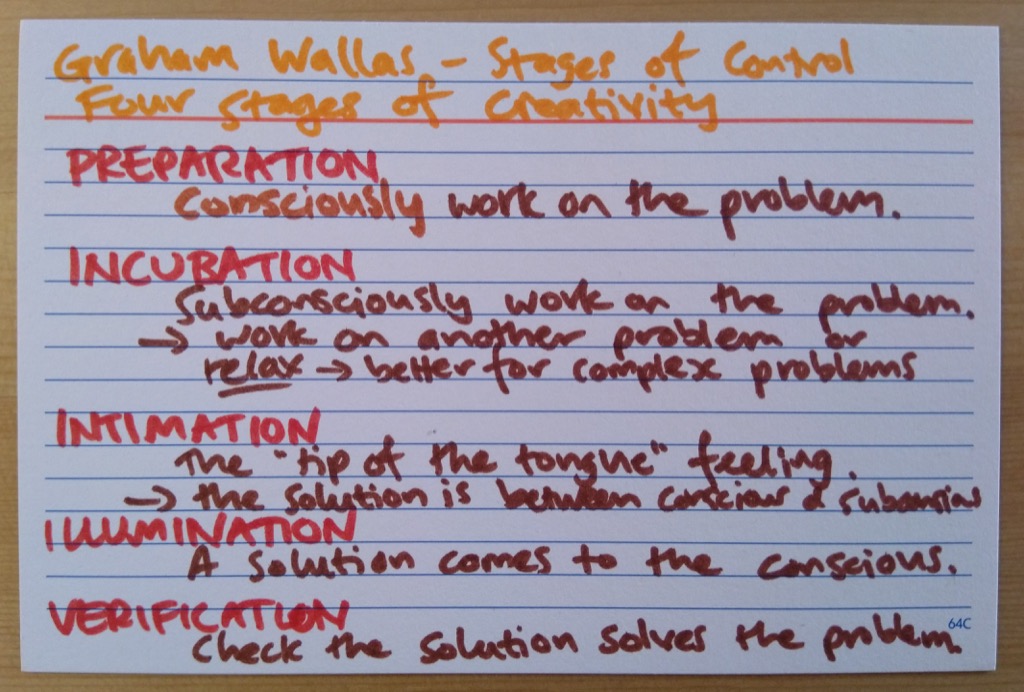 Graham Wallas - Stages of Control
Four Stages of Creativity
PREPARATION
Consciously work on the problem.
INCUBATION
Subconsciously work on the problem.
→ work on another problem or
relax → better for complex problems
INTIMATION
The "tip of the tongue" feeling.
→ the solution is between conscious & subconscious
ILLUMINATION
A solution comes to the conscious.
VERIFICATION
Check the solution solves the problem.
64C